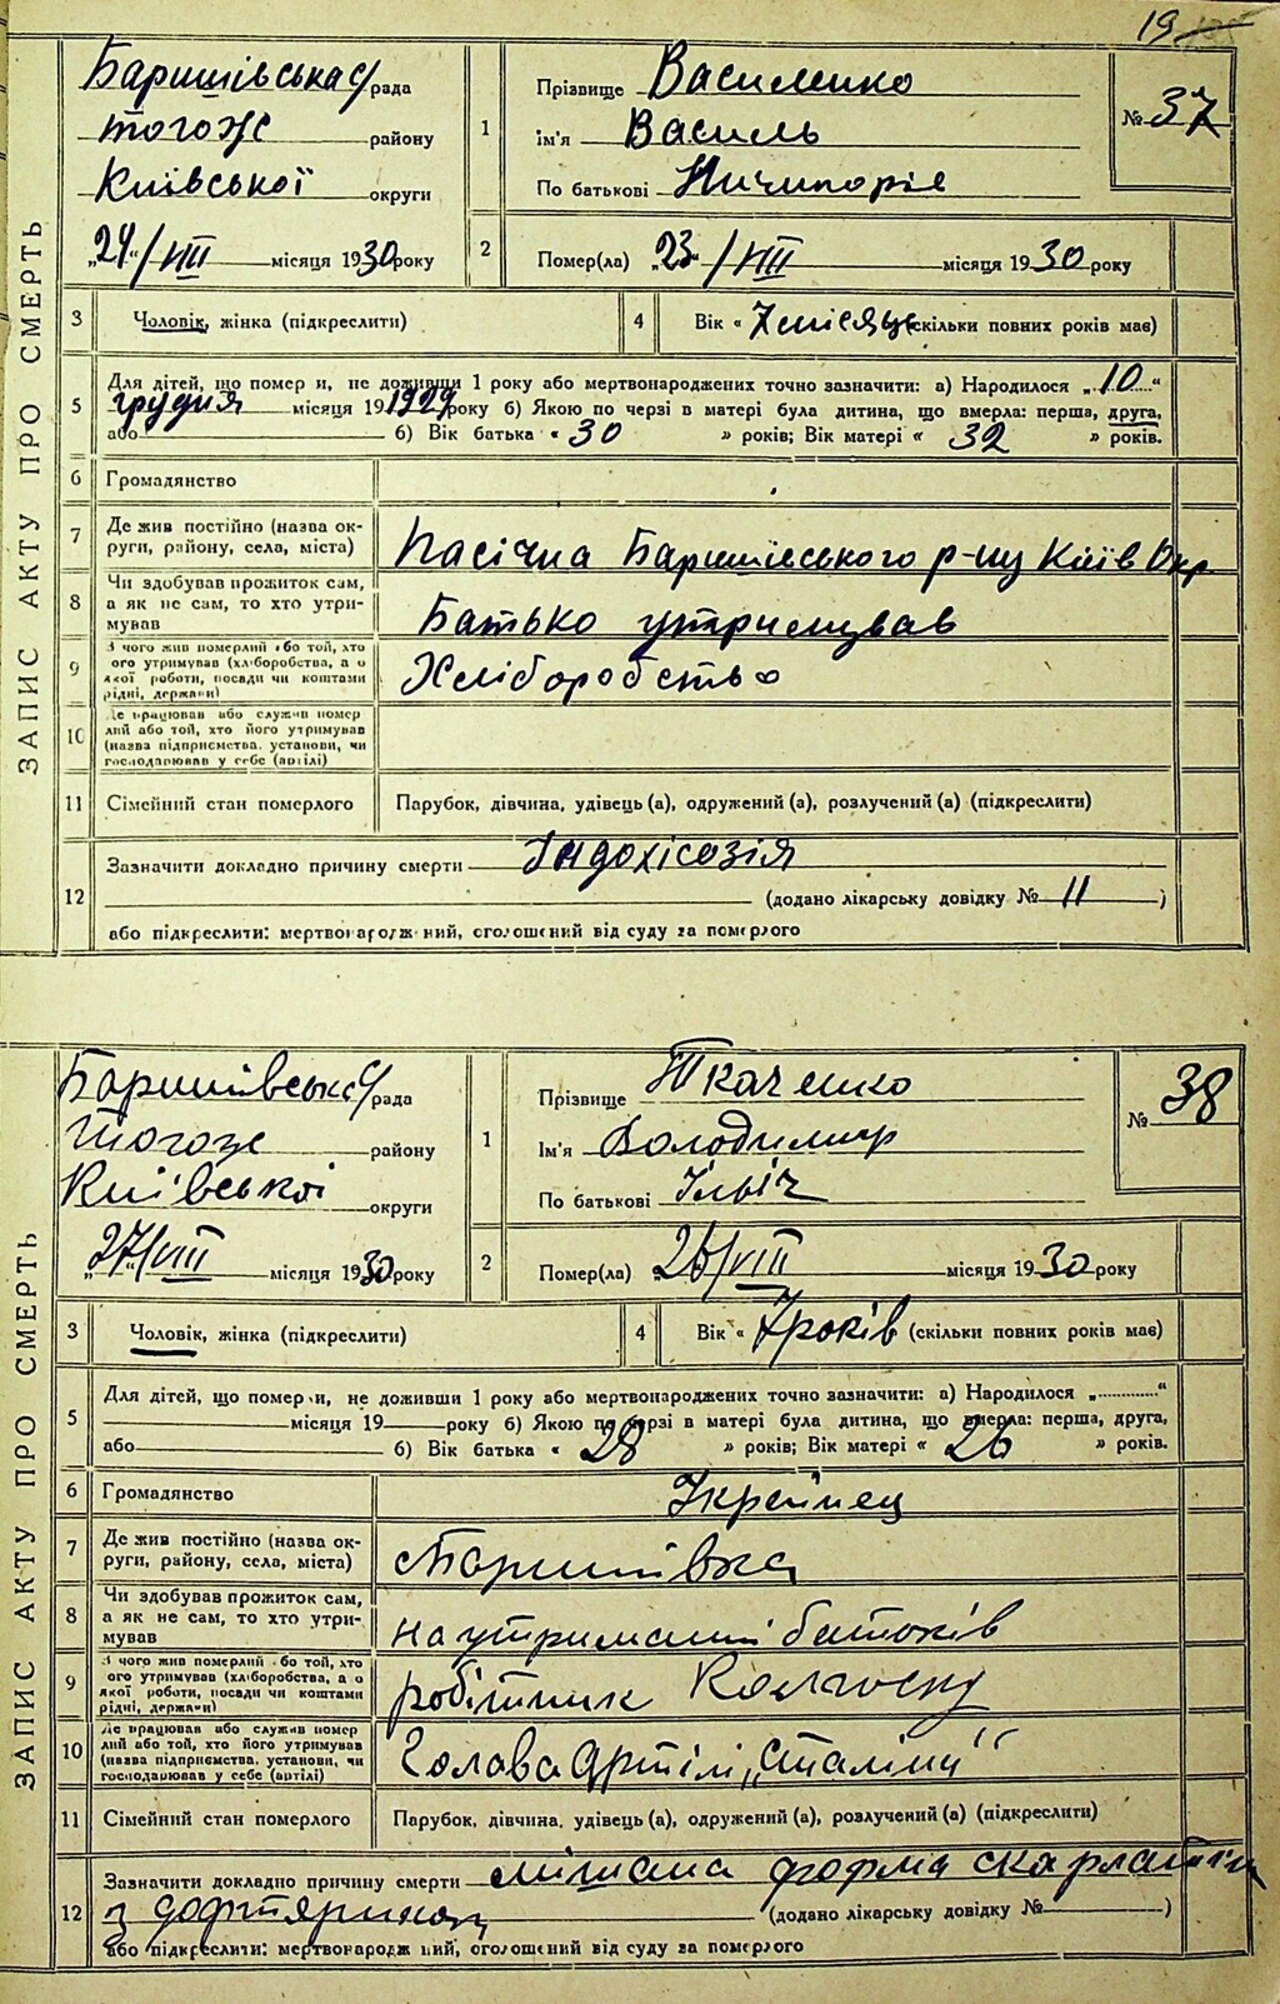 19
ЗАПИС АКТУ ПРО СМЕРТЬ
Баришівська с/рада
тогож району
Київської округи
„24“/VIII місяця 1930 року
1 Прізвище Василенко
Ім'я Василь
По батькові Ничипорів
№ 37
2 Помер(ла) „23“/VIII місяця 1930 року
3 Чоловік, жінка (підкреслити)
4 Вік « 7 місяців (скільки повних років має)
5 Для дітей, що померли, не доживши 1 року або мертвонароджених точно зазначити: а) Народилося „10“
грудня місяця 19 1929 року б) Якою по черзі в матері була дитина, що вмерла: перша, друга,
або б) Вік батька « 30 » років; Вік матері « 32 » років.
6 Громадянство
7 Де жив постійно (назва ок-
руги, району, села, міста)
Пасічна Баришівського р-ну Київ Окр.
8 Чи здобував прожиток сам,
а як не сам, то хто утри-
мував
Батько утримував
9 З чого жив померлий або той, хто
його утримував (хліборобства, з
якої роботи, посади чи коштами
рідні, держави)
Хліборобство
10 Де працював або служив помер
лий або той, хто його утримував
(назва підприємства, установи, чи
господарював у себе (артілі)
11 Сімейний стан померлого
Парубок, дівчина, удівець (а), одружений (а), розлучений (а) (підкреслити)
12 Зазначити докладно причину смерти
(додано лікарську довідку № 11)
або підкреслити: мертвонароджений, оголошений від суду за померлого
ЗАПИС АКТУ ПРО СМЕРТЬ
Баришівська с/рада
Тогож району
Київської округи
„27“/VIII місяця 1930 року
1 Прізвище Ткаченко
Ім'я Володимир
По батькові Ільіч
№ 38
2 Помер(ла) „26/VIII місяця 1930 року
3 Чоловік, жінка (підкреслити)
4 Вік « 7 років (скільки повних років має)
5 Для дітей, що померли, не доживши 1 року або мертвонароджених точно зазначити: а) Народилося „ “
місяця 19 року б) Якою по черзі в матері була дитина, що вмерла: перша, друга,
або б) Вік батька « 28 » років; Вік матері « 26 » років.
6 Громадянство Украйнец
7 Де жив постійно (назва ок-
руги, району, села, міста)
с Баришівка
8 Чи здобував прожиток сам,
а як не сам, то хто утри-
мував
на утриманні батьків
9 З чого жив померлий або той, хто
його утримував (хліборобства, з
якої роботи, посади чи коштами
рідні, держави)
робітник Колгоспу
10 Де працював або служив помер
лий або той, хто його утримував
(назва підприємства, установи, чи
господарював у себе (артілі)
Голава Артілі „Сталіна“
11 Сімейний стан померлого
Парубок, дівчина, удівець (а), одружений (а), розлучений (а) (підкреслити)
12 Зазначити докладно причину смерти мішана форма скарлатіни
з дофтяриною (додано лікарську довідку № )
або підкреслити: мертвонароджений, оголошений від суду за померлого